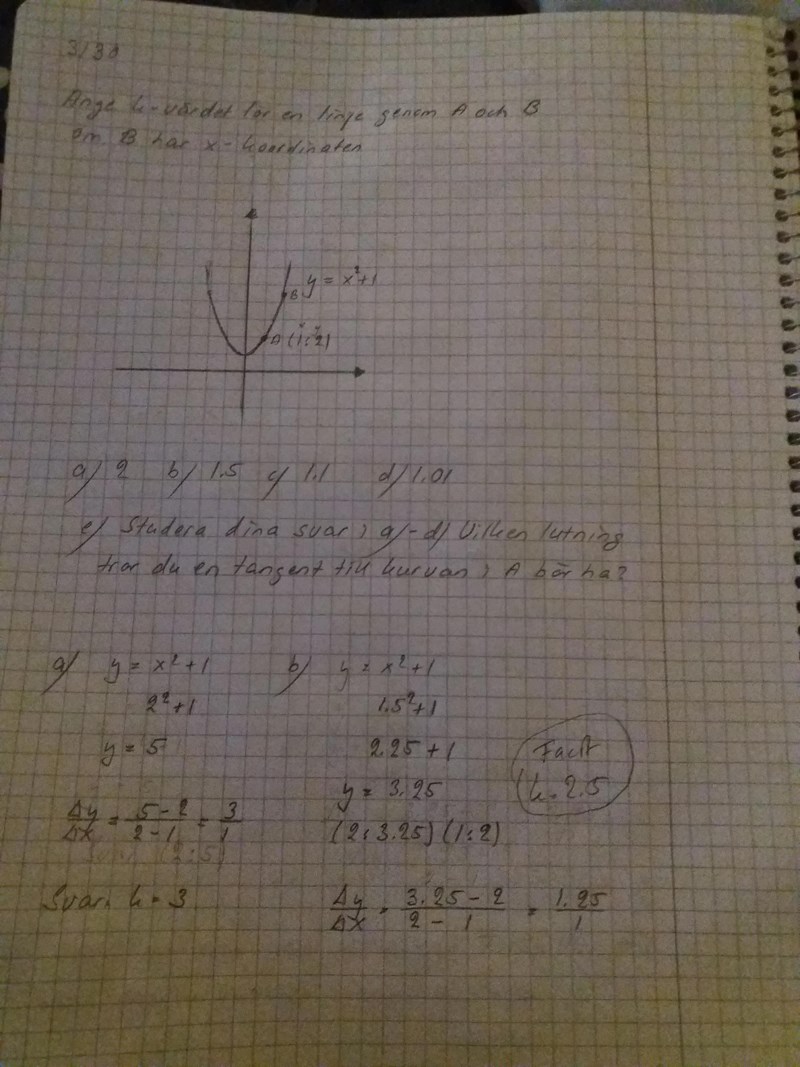 3130
Ange k-värdet för en linje genom A och B
om B har x-koordinaten
y = x²+1
B
A (1:2)
x y
a) 2 b) 1.5 c) 1.1 d) 1.01
e) Studera dina svar i a)-d) Vilken lutning
tror du en tangent till kurvan i A bör ha?
a) y = x²+1 b) y = x²+1
2²+1 1.5²+1
y = 5 2.25 + 1
Facit
k = 2.5
y = 3.25
Δy/Δx = 5-2/2-1 = 3/1 (2:3.25) (1:2)
Svar (2:5)
Svar: k = 3 Δy/Δx = 3.25-2/2-1 = 1.25/1